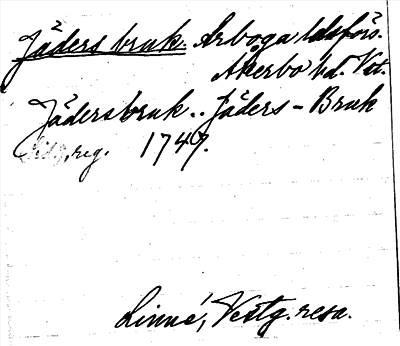 Jäders bruk. Arboga ldsförs.
Åkerbo hd. Vst.
Jädersbruk.. Jäders-Bruk
reg. 1747.
Linné, Vestg. resa.